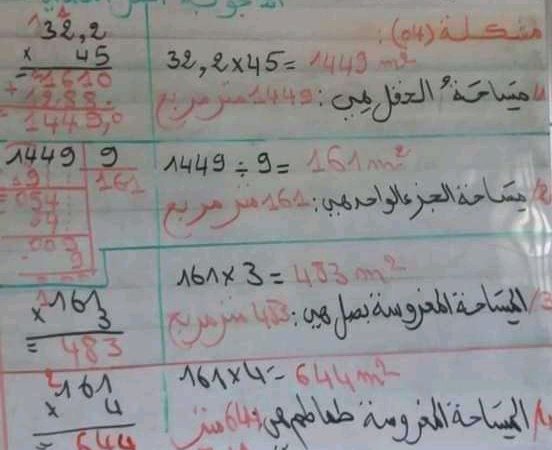 مشكلة (04):
32,2×45= 1449 m²
1/ مساحة الحقل هي: 1449 متر مربع
1449 ÷ 9 = 161 m²
2/ مساحة الجزء الواحد هي: 161 متر مربع
161 × 3 = 483 m²
3/ المساحة المغروسة بصل هي: 483 متر مربع
161×4= 644 m²
4/ المساحة المغروسة طماطم هي: 644 متر
32,2
× 45
= 1610
+ 1288.
= 1449,0
1449 9
9 161
= 054
54
009
9
161
× 3
= 483
161
× 4
= 644